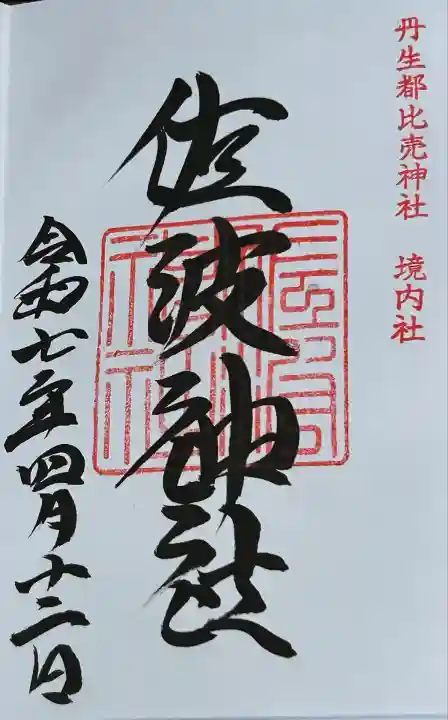 丹生都比売神社 境内社
佐波神社
令和七年四月十二日